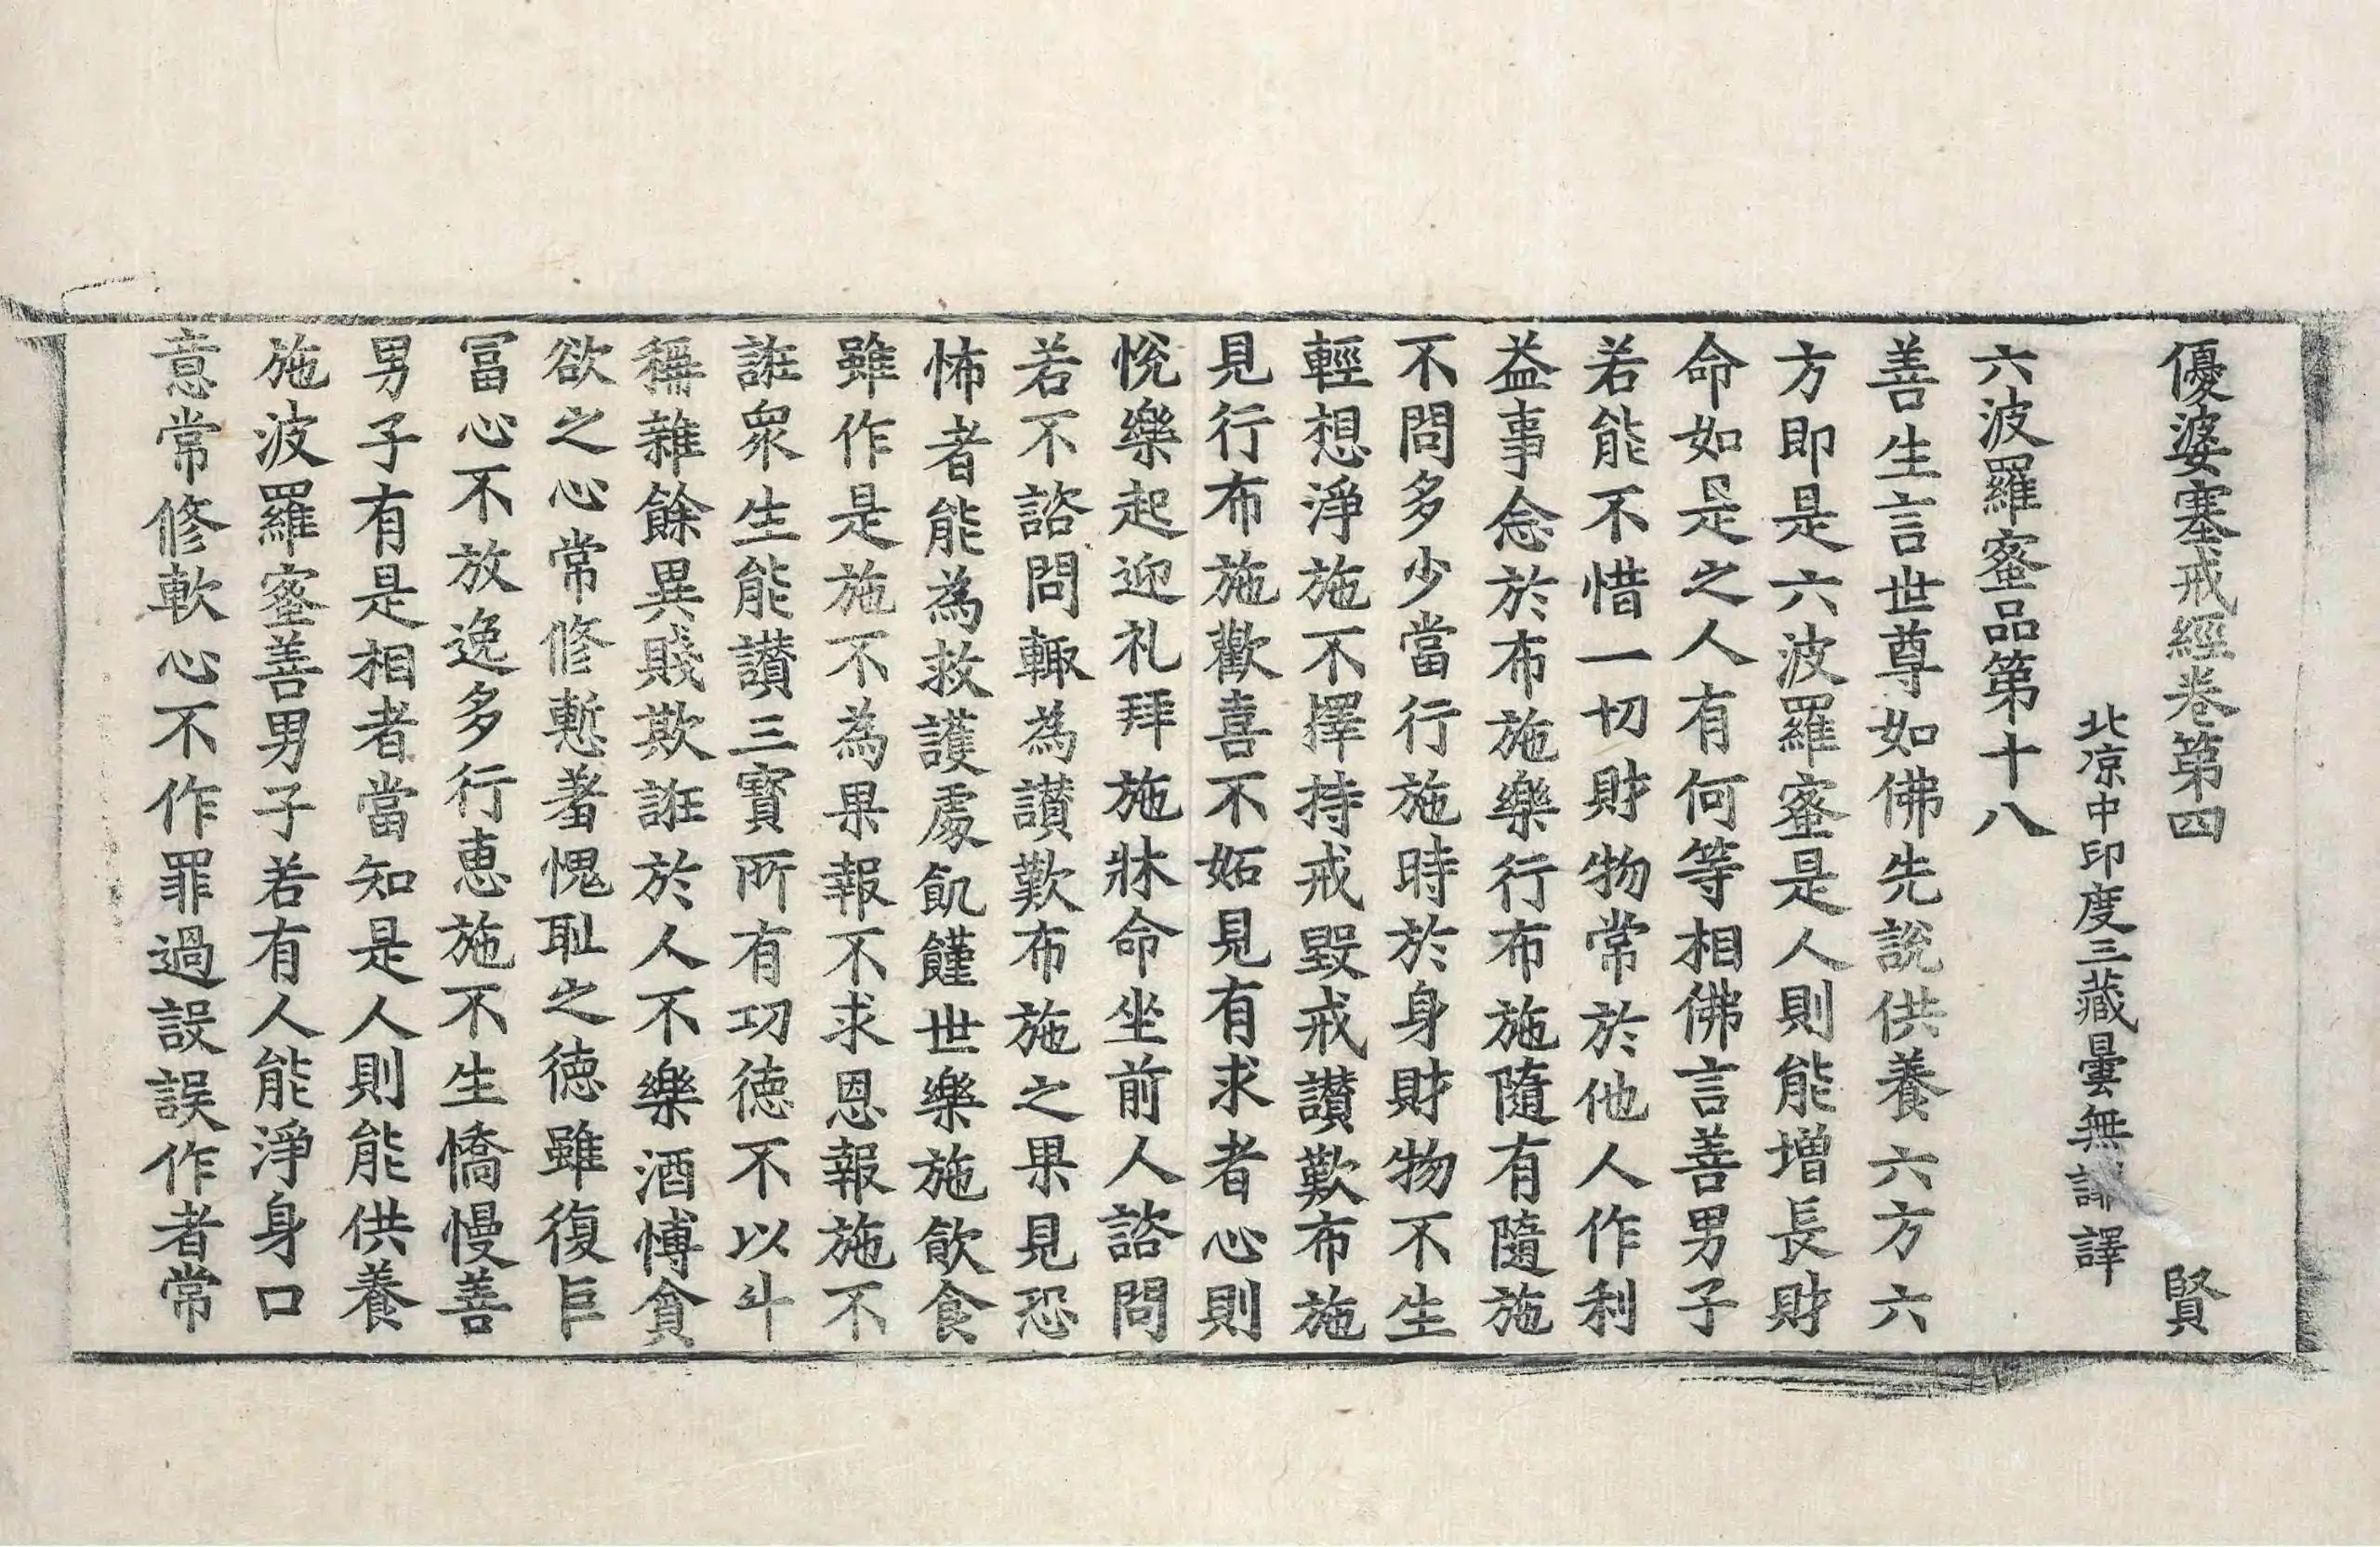 優婆塞戒經卷第四 賢
北凉中印度三藏曇無譯
六波羅蜜品第十八
善生言世尊如佛先說供養六方六
方即是六波羅蜜是人則能增長財
命如是之人有何等相佛言善男子
若能不惜一切財物常於他人作利
益事念於布施樂行布施隨有隨施
不問多少當行施時於身財物不生
輕想淨施不擇持戒毀戒讃歎布施
見行布施歡喜不妬見有求者心則
悅樂起迎礼拜施牀命坐前人諮問
若不諮問輙為讃歎布施之果見恐
怖者能為救護處飢饉世樂施飲食
雖作是施不為果報不求恩報施不
誑眾生能讃三寶所有功德不以斗
稱雜餘異賤欺誑於人不樂酒博貪
欲之心常修慙羞愧耻之德雖復巨
冨心不放逸多行惠施不生憍慢善
男子有是相者當知是人則能供養
施波羅蜜善男子若有人能淨身口
意常修軟心不作罪過設誤作者常